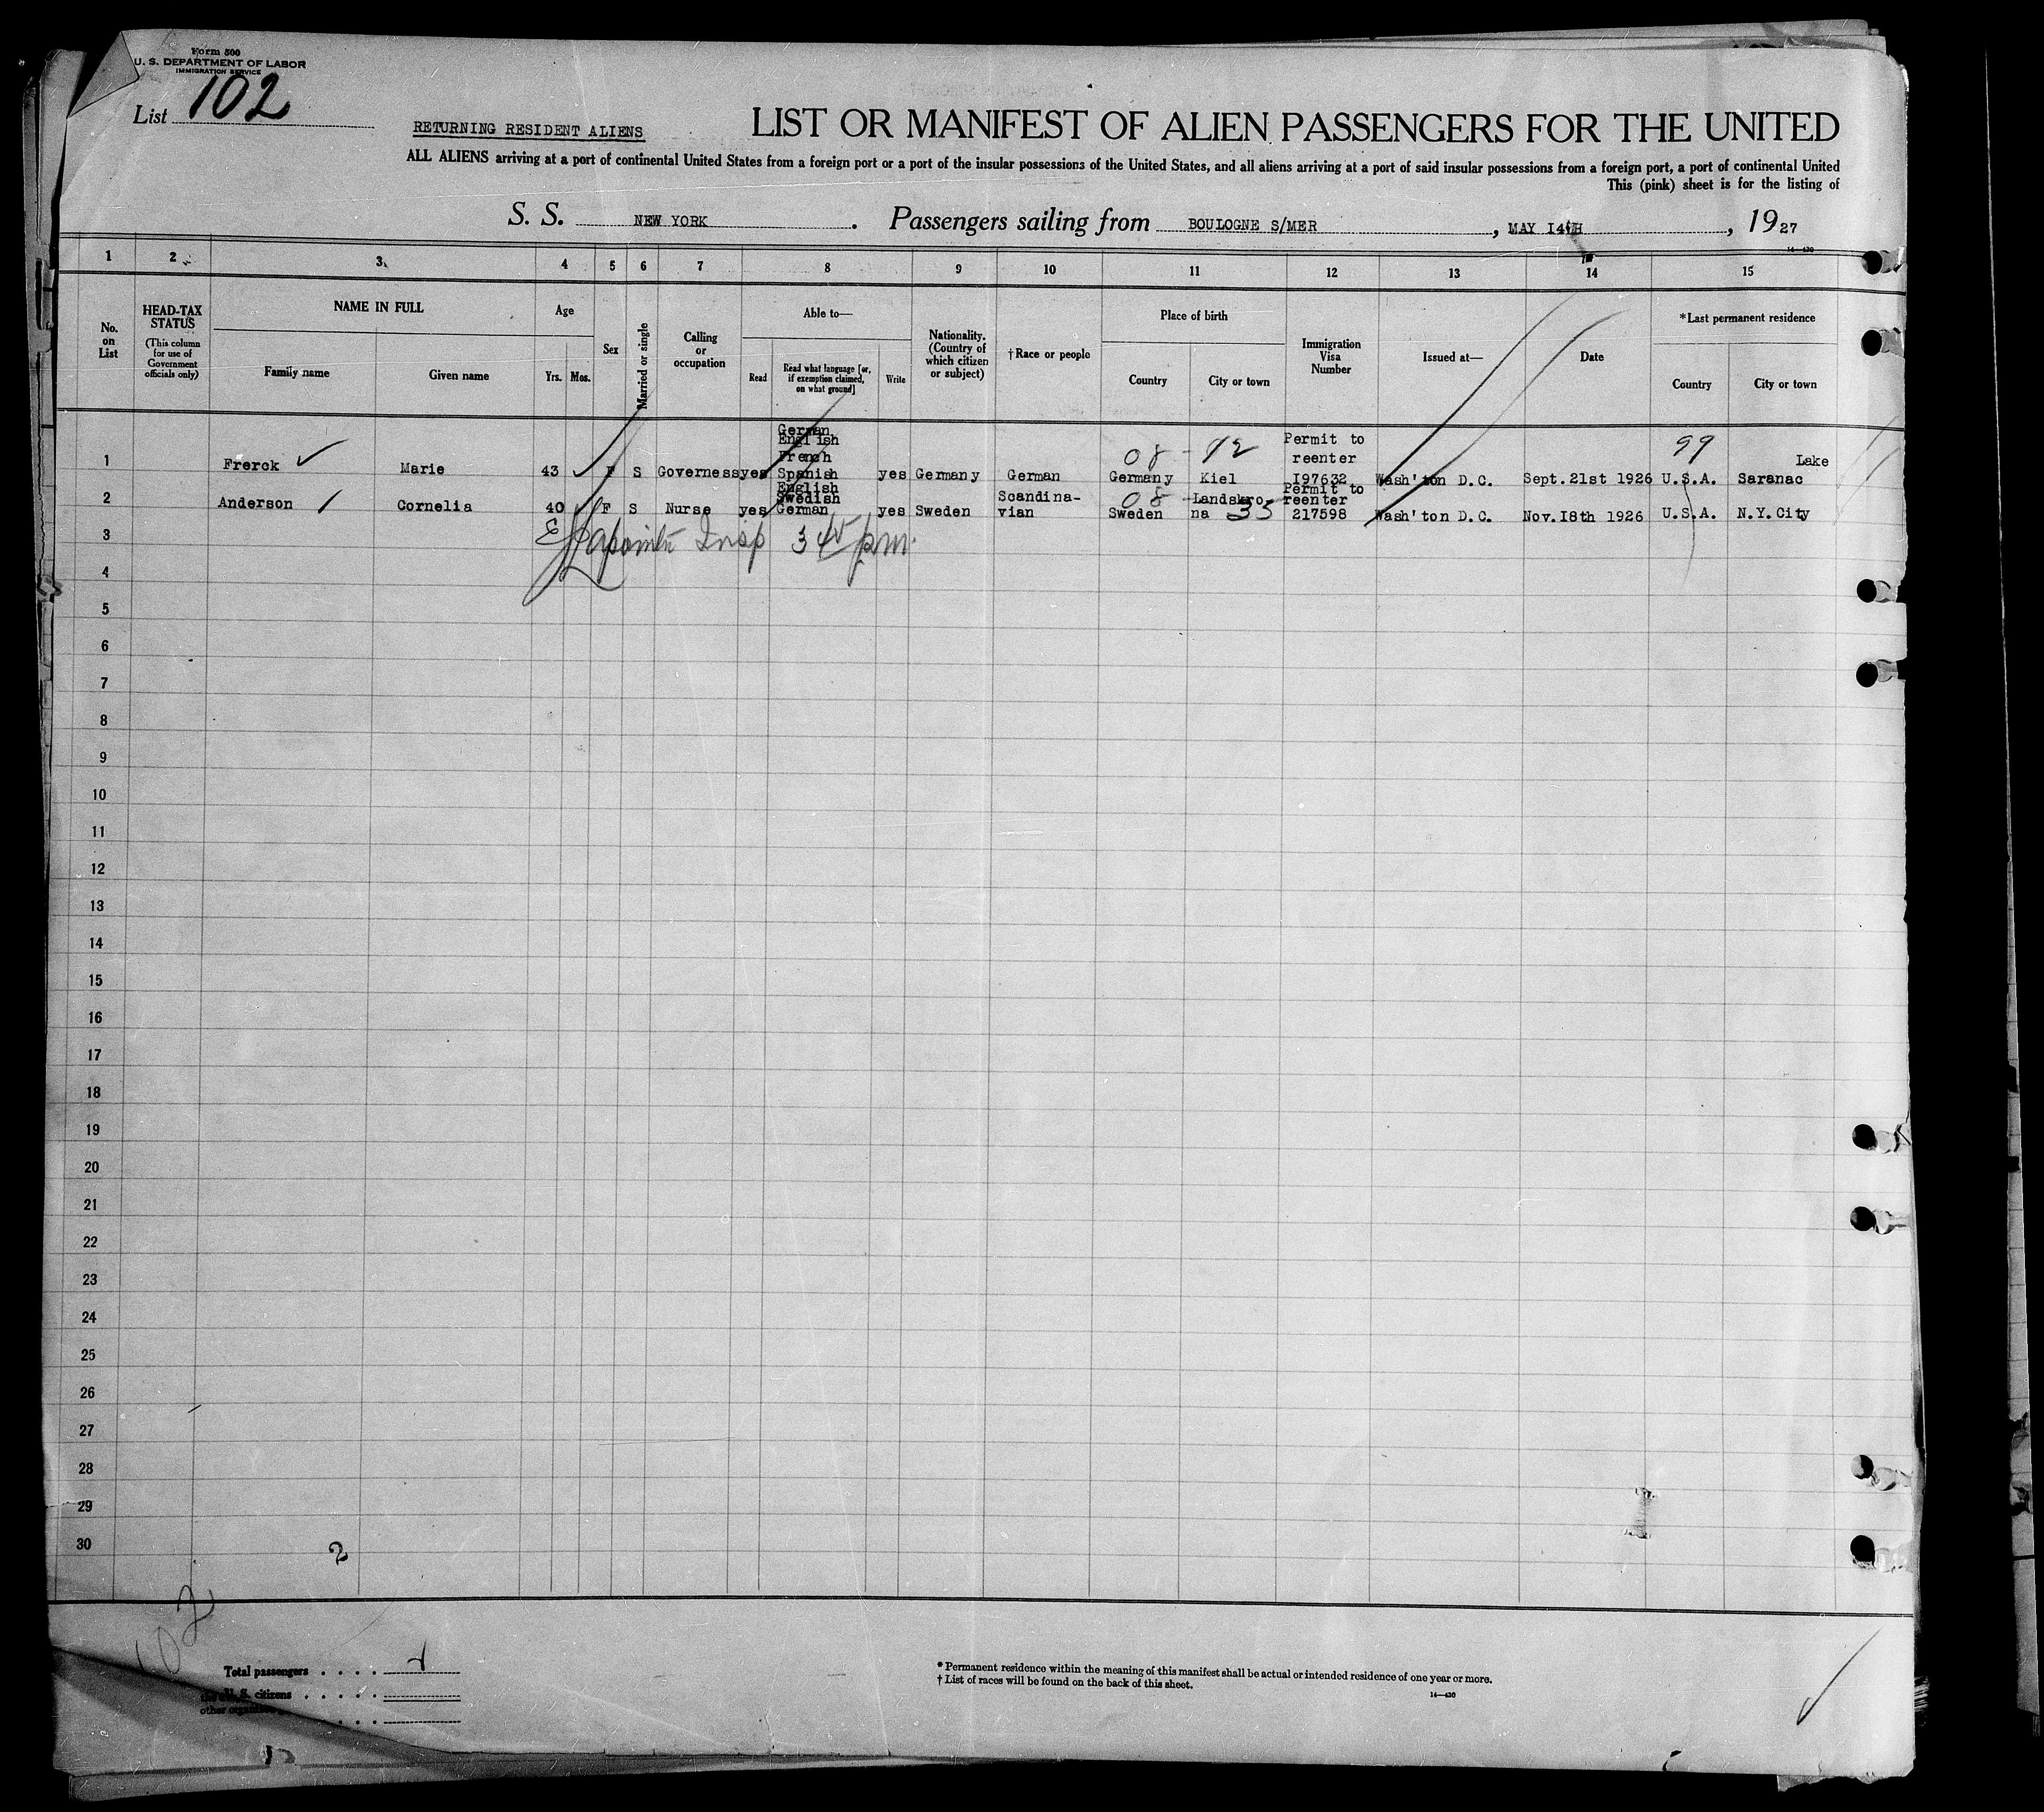 Form 500
U. S. DEPARTMENT OF LABOR
IMMIGRATION SERVICE
List 102
RETURNING RESIDENT ALIENS
LIST OR MANIFEST OF ALIEN PASSENGERS FOR THE UNITED
ALL ALIENS arriving at a port of continental United States from a foreign port or a port of the insular possessions of the United States, and all aliens arriving at a port of said insular possessions from a foreign port, a port of continental United
This (pink) sheet is for the listing of
S. S. NEW YORK. Passengers sailing from BOULOGNE S/MER, MAY I4tH, 1927
14—430
1 2 3 4 5 6 7 8 9 10 11 12 13 14 15
No. on List
HEAD-TAX STATUS
(This column for use of Government officials only)
NAME IN FULL
Family name
Given name
Age
Yrs. Mos.
Sex
Married or single
Calling or occupation
Able to—
Read
Read what language [or, if exemption claimed, on what ground]
Write
Nationality. (Country of which citizen or subject)
†Race or people
Place of birth
Country
City or town
Immigration Visa Number
Issued at—
Date
*Last permanent residence
Country
City or town
1 Frerck Marie 43 F S Governess yes German English French Spanish yes Germany German Germany Kiel Permit to reenter I97632 Wash'ton D.C. Sept.21st 1926 U.S.A. Saranac Lake
08 - 92
99
2 Anderson Cornelia 40 F S Nurse yes English Swedish German yes Sweden Scandina-vian Sweden Landskro na Permit to reenter 217598 Wash'ton D.C. Nov.I8th 1926 U.S.A. N.Y.City
08 35
3 Lapointe Insp 3 45 pm.
4
5
6
7
8
9
10
11
12
13
14
15
16
17
18
19
20
21
22
23
24
25
26
27
28
29
30
2
102
Total passengers . . . .
U. S. citizens . . . . .
* Permanent residence within the meaning of this manifest shall be actual or intended residence of one year or more.
† List of races will be found on the back of this sheet.
14—430